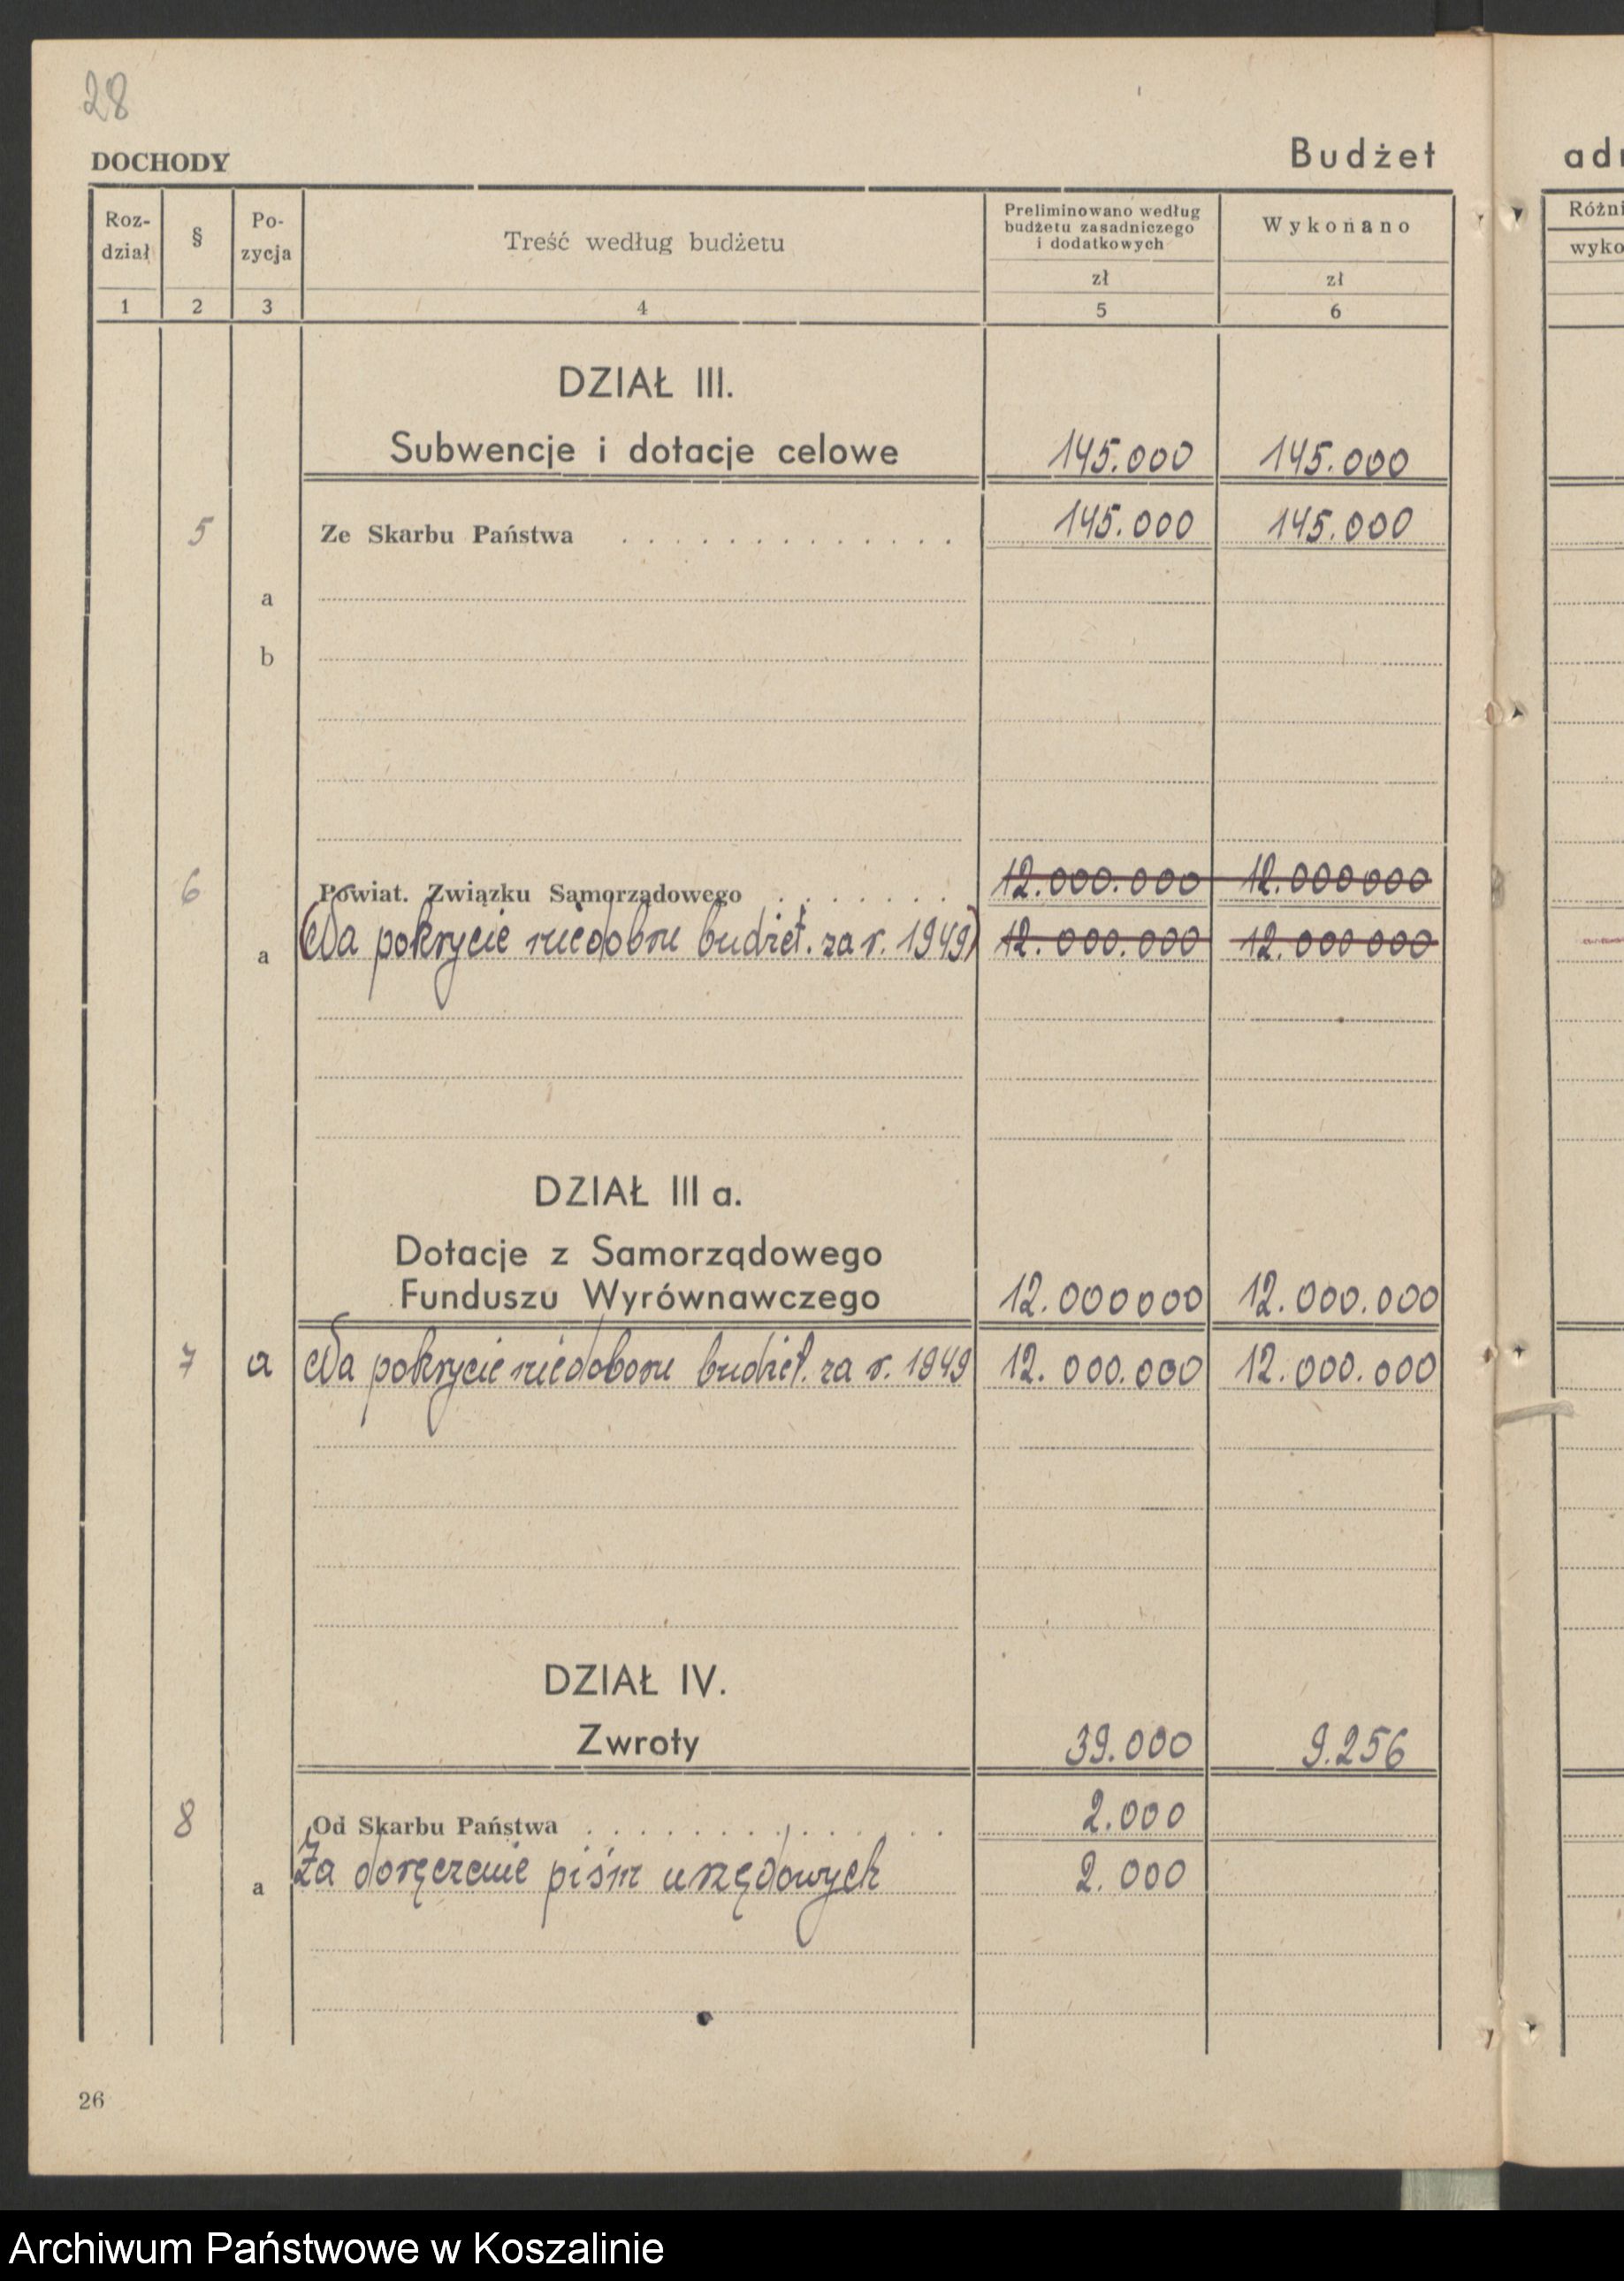 28
DOCHODY
Budżet
Roz-
dział
§
Po-
zycja
Treść według budżetu
Preliminowano według
budżetu zasadniczego
i dodatkowych
Wykonano
zł
zł
1 2 3 4 5 6
Różni
wyko
DZIAŁ III.
Subwencje i dotacje celowe 145.000 145.000
5 Ze Skarbu Państwa . . . . . . . . . . . . . 145.000 145.000
a
b
6 Powiat. Związku Samorządowego . . . . . . . 12.000.000 12.000000
a (Na pokrycie niedoboru budżet. za r. 1949) 12.000.000 12.000000
DZIAŁ III a.
Dotacje z Samorządowego
Funduszu Wyrównawczego 12.000000 12.000.000
7 a Na pokrycie niedoboru budżet. za r. 1949 12.000.000 12.000.000
DZIAŁ IV.
Zwroty 39.000 9.256
8 Od Skarbu Państwa . . . . . . . . . . . . . . 2.000
a Za doręczenie pism urzędowych 2.000
26
Archiwum Państwowe w Koszalinie